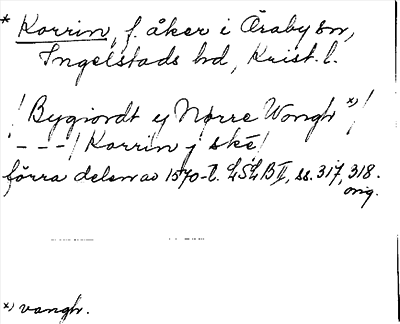 * Korrin, f. åker i Öraby sn,
Ingelstads hd, Krist. l.
/ Bygiordt ej Nørre Wongh *) /
- - - / Korrin j skë /
förra delen av 1570-t. LSLB II, ss. 317, 318.
orig.
*) vangh.